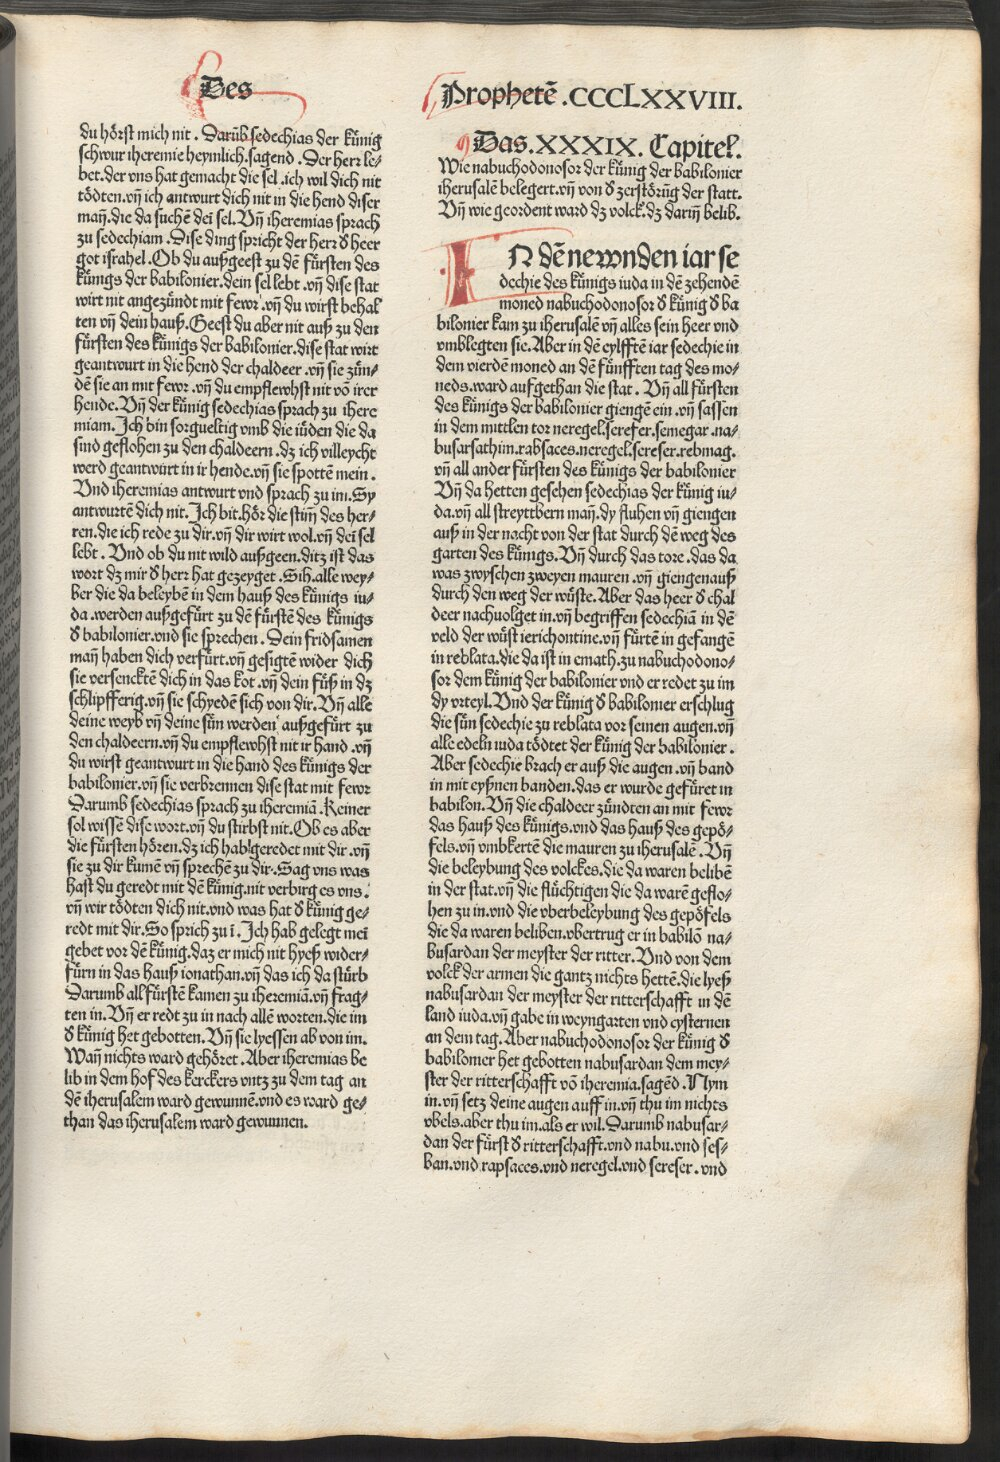 Des
du hörst mich nit . Darũb sedechias der künig
schwur iheremie heymlich.sagend . Der herr le⸗
bet.der vns hat gemacht die sel .ich wil dich nit
tödten.vñ ich antwurt dich nit in die hend diser
mañ.die da suchẽ dei sel. Vñ iheremias sprach
zu sedechiam .Dise ding spricht der herr d heer
got israhel . Ob du außgeest zu dẽ fürsten des
künigs der babilonier.dein sel lebt .vñ dise stat
wirt nit angezündt mit fewr .vñ du wirst behal
ten vñ dein hauß.Geest du aber nit auß zu den
fürsten des künigs der babilonier.dise stat wirt
geantwurt in die hend der chaldeer .vñ sie zün⸗
dẽ sie an mit fewr .vñ du empflewhst nit võ irer
hende.Vñ der künig sedechias sprach zu ihere
miam. Ich bin sorgueltig vmb die iüden die da
sind geflohen zu den chaldeern .dz ich villeycht
werd geantwürt in ir hende.vñ sie spottẽ mein .
Vnd iheremias antwurt vnd sprach zu im.Sy
antwurtẽ dich nit. Ich bit.hör die stim̃ des her⸗
ren.die ich rede zu dir.vñ dir wirt wol.vñ dei sel
lebt . Vnd ob du nit wild außgeen.ditz ist das
wort dz mir d herr hat gezeyget .Sih.alle wey⸗
ber die da beleybẽ in dem hauß des künigs iu⸗
da .werden außgefürt zu dẽ fürstẽ des künigs
d babilonier.vnd sie sprechen . Dein fridsamen
mañ haben dich verfürt.vñ gesigtẽ wider dich
sie versencktẽ dich in das kot .vñ dein füß in dz
schlipfferig.vñ sie schyedẽ sich von dir.Vñ alle
deine weyb vñ deine sün werden außgefürt zu
den chaldeern.vñ du empflewhst nit ir hand .vñ
du wirst geantwurt in die hand des künigs der
babilonier.vñ sie verbrennen dise stat mit fewr
Darumb sedechias sprach zu iheremiã .Keiner
sol wissẽ dise wort.vñ du stirbst nit.Ob es aber
die fürsten hören.dz ich hab geredet mit dir .vñ
sie zu dir kumẽ vñ sprechẽ zu dir.Sag vns was
hast du geredt mit dẽ künig.nit verbirg es vns .
vñ wir tödten dich nit.vnd was hat d künig ge⸗
redt mit dir.So sprich zu ĩ. Ich hab gelegt mei
gebet vor dẽ künig.daz er mich nit hyeß wider⸗
fürn in das hauß ionathan.vñ das ich da stürb
Darumb all fürstẽ kamen zu iheremiã.vñ frag⸗
ten in. Vñ er redt zu in nach allẽ worten.die im
d künig het gebotten. Vñ sie lyessen ab von im.
Wañ nichts ward gehöret .Aber iheremias be
lib in dem hof des kerckers vntz zu dem tag an
dẽ iherusalem ward gewunnẽ.vnd es ward ge⸗
than das iherusalem ward gewunnen.
Prophetẽ .CCCLXXVIII.
Das.XXXIX. Capitel.
Wie nabuchodonosor der künig der babilonier
iherusalẽ belegert.vñ von d zerstörũg der statt.
Vñ wie geordent ward dz volck.dz dariñ belib.
IN dẽ newnden iar se
dechie des künigs iuda in dẽ zehendẽ
moned nabuchodonosor d künig d ba
bilonier kam zu iherusalẽ vñ alles sein heer vnd
vmblegten sie.Aber in dẽ eylfftẽ iar sedechie in
dem vierdẽ moned an dẽ fünfften tag des mo⸗
neds.ward aufgethan die stat . Vñ all fürsten
des künigs der babilonier giengẽ ein .vñ sassen
in dem mittlen tor neregel.serefer.semegar .na⸗
busarsathim.rabsaces.neregel.sereser.rebmag.
vñ all ander fürsten des künigs der babilonier
Vñ da hetten gesehen sedechias der künig iu⸗
da.vñ all streyttbern mañ.dy fluhen vñ giengen
auß in der nacht von der stat durch dẽ weg des
garten des künigs. Vñ durch das tore .das da
was zwyschen zweyen mauren .vñ giengenauß
durch den weg der wüste. Aber das heer d chal
deer nachuolget in.vñ begriffen sedechiã in dẽ
veld der wüst ierichontine.vñ fürtẽ in gefangẽ
in reblata.die da ist in emath.zu nabuchodono⸗
sor dem künig der babilonier vnd er redet zu im
dy vrteyl. Vnd der künig d babilonier erschlug
die sün sedechie zu reblata vor seinen augen.vñ
alle edeln iuda tödtet der künig der babilonier .
Aber sedechie brach er auß die augen .vñ band
in mit eyßnen banden.das er wurde gefüret in
babilon. Vñ die chaldeer zündten an mit fewr
das hauß des künigs.vnd das hauß des gepö⸗
fels.vñ vmbkertẽ die mauren zu iherusalẽ . Vñ
die beleybung des volckes.die da waren belibẽ
in der stat.vñ die flüchtigen die da warẽ geflo⸗
hen zu in.vnd die vberbeleybung des gepöfels
die da waren beliben.vbertrug er in babilõ na⸗
busardan der meyster der ritter. Vnd von dem
volck der armen die gantz nichts hettẽ.die lyeß
nabusardan der meyster der ritterschafft in dẽ
land iuda.vñ gabe in weyngarten vnd cysternen
an dem tag. Aber nabuchodonosor der künig d
babilonier het gebotten nabusardan dem mey⸗
ster der ritterschafft võ iheremia.sagẽd .Nym
in.vñ setz deine augen auff in.vñ thu im nichts
vbels.aber thu im.als er wil.Darumb nabusar⸗
dan der fürst d ritterschafft.vnd nabu.vnd ses⸗
ban.vnd rapsaces.vnd neregel.vnd sereser . vnd